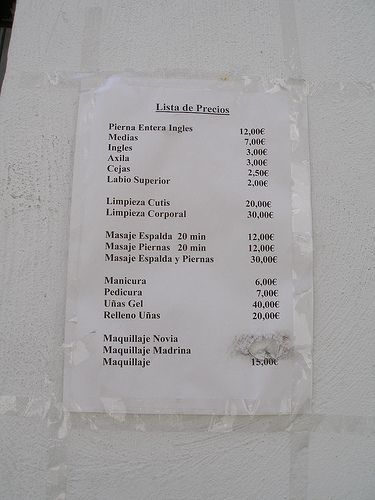 Lista de Precios
Pierna Entera Ingles 12,00€
Medias 7,00€
Ingles 3,00€
Axila 3,00€
Cejas 2,50€
Labio Superior 2,00€
Limpieza Cutis 20,00€
Limpieza Corporal 30,00€
Masaje Espalda 20 min 12,00€
Masaje Piernas 20 min 12,00€
Masaje Espalda y Piernas 30,00€
Manicura 6,00€
Pedicura 7,00€
Uñas Gel 40,00€
Relleno Uñas 20,00€
Maquillaje Novia
Maquillaje Madrina
Maquillaje 15,00€